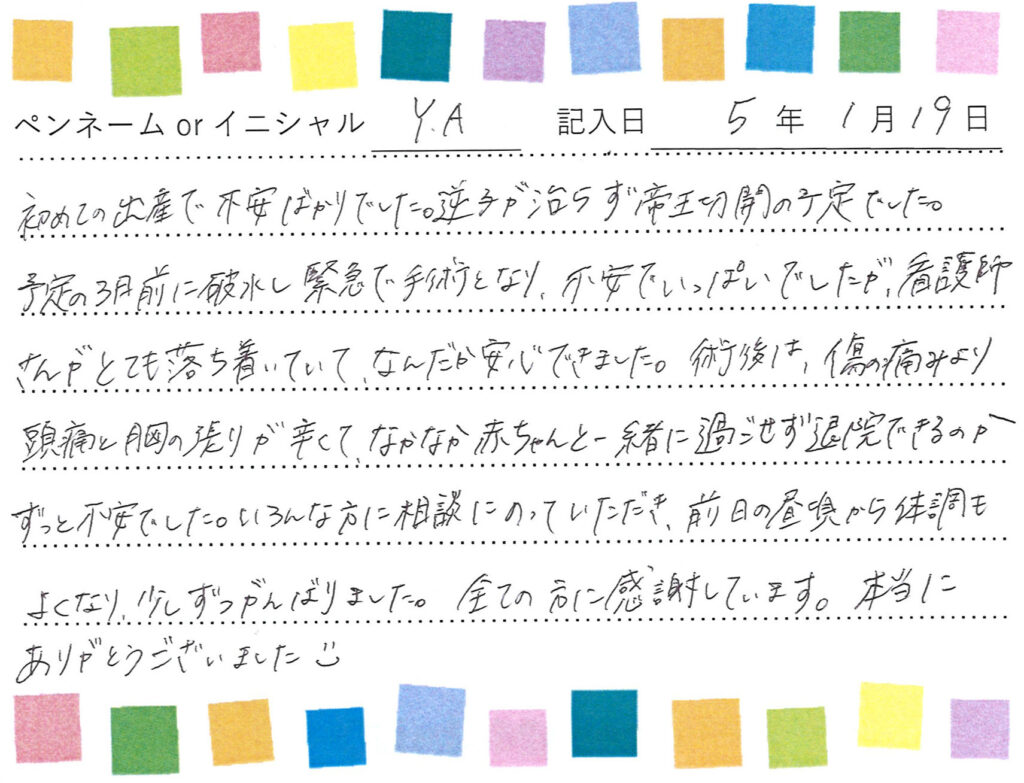 ペンネーム or イニシャル Y.A 記入日 5年 1月19日
初めての出産で不安ばかりでした。逆子が治らず帝王切開の予定でした。
予定の3日前に破水し緊急で手術となり、不安でいっぱいでしたが、看護師
さんがとても落ち着いていて、なんだか安心できました。術後は、傷の痛みより
頭痛と胸の張りが辛くて、なかなか赤ちゃんと一緒に過ごせず退院できるのか
ずっと不安でした。いろんな方に相談にのっていただき、前日の昼頃から体調も
よくなり、少しずつがんばりました。全ての方に感謝しています。本当に
ありがとうございました